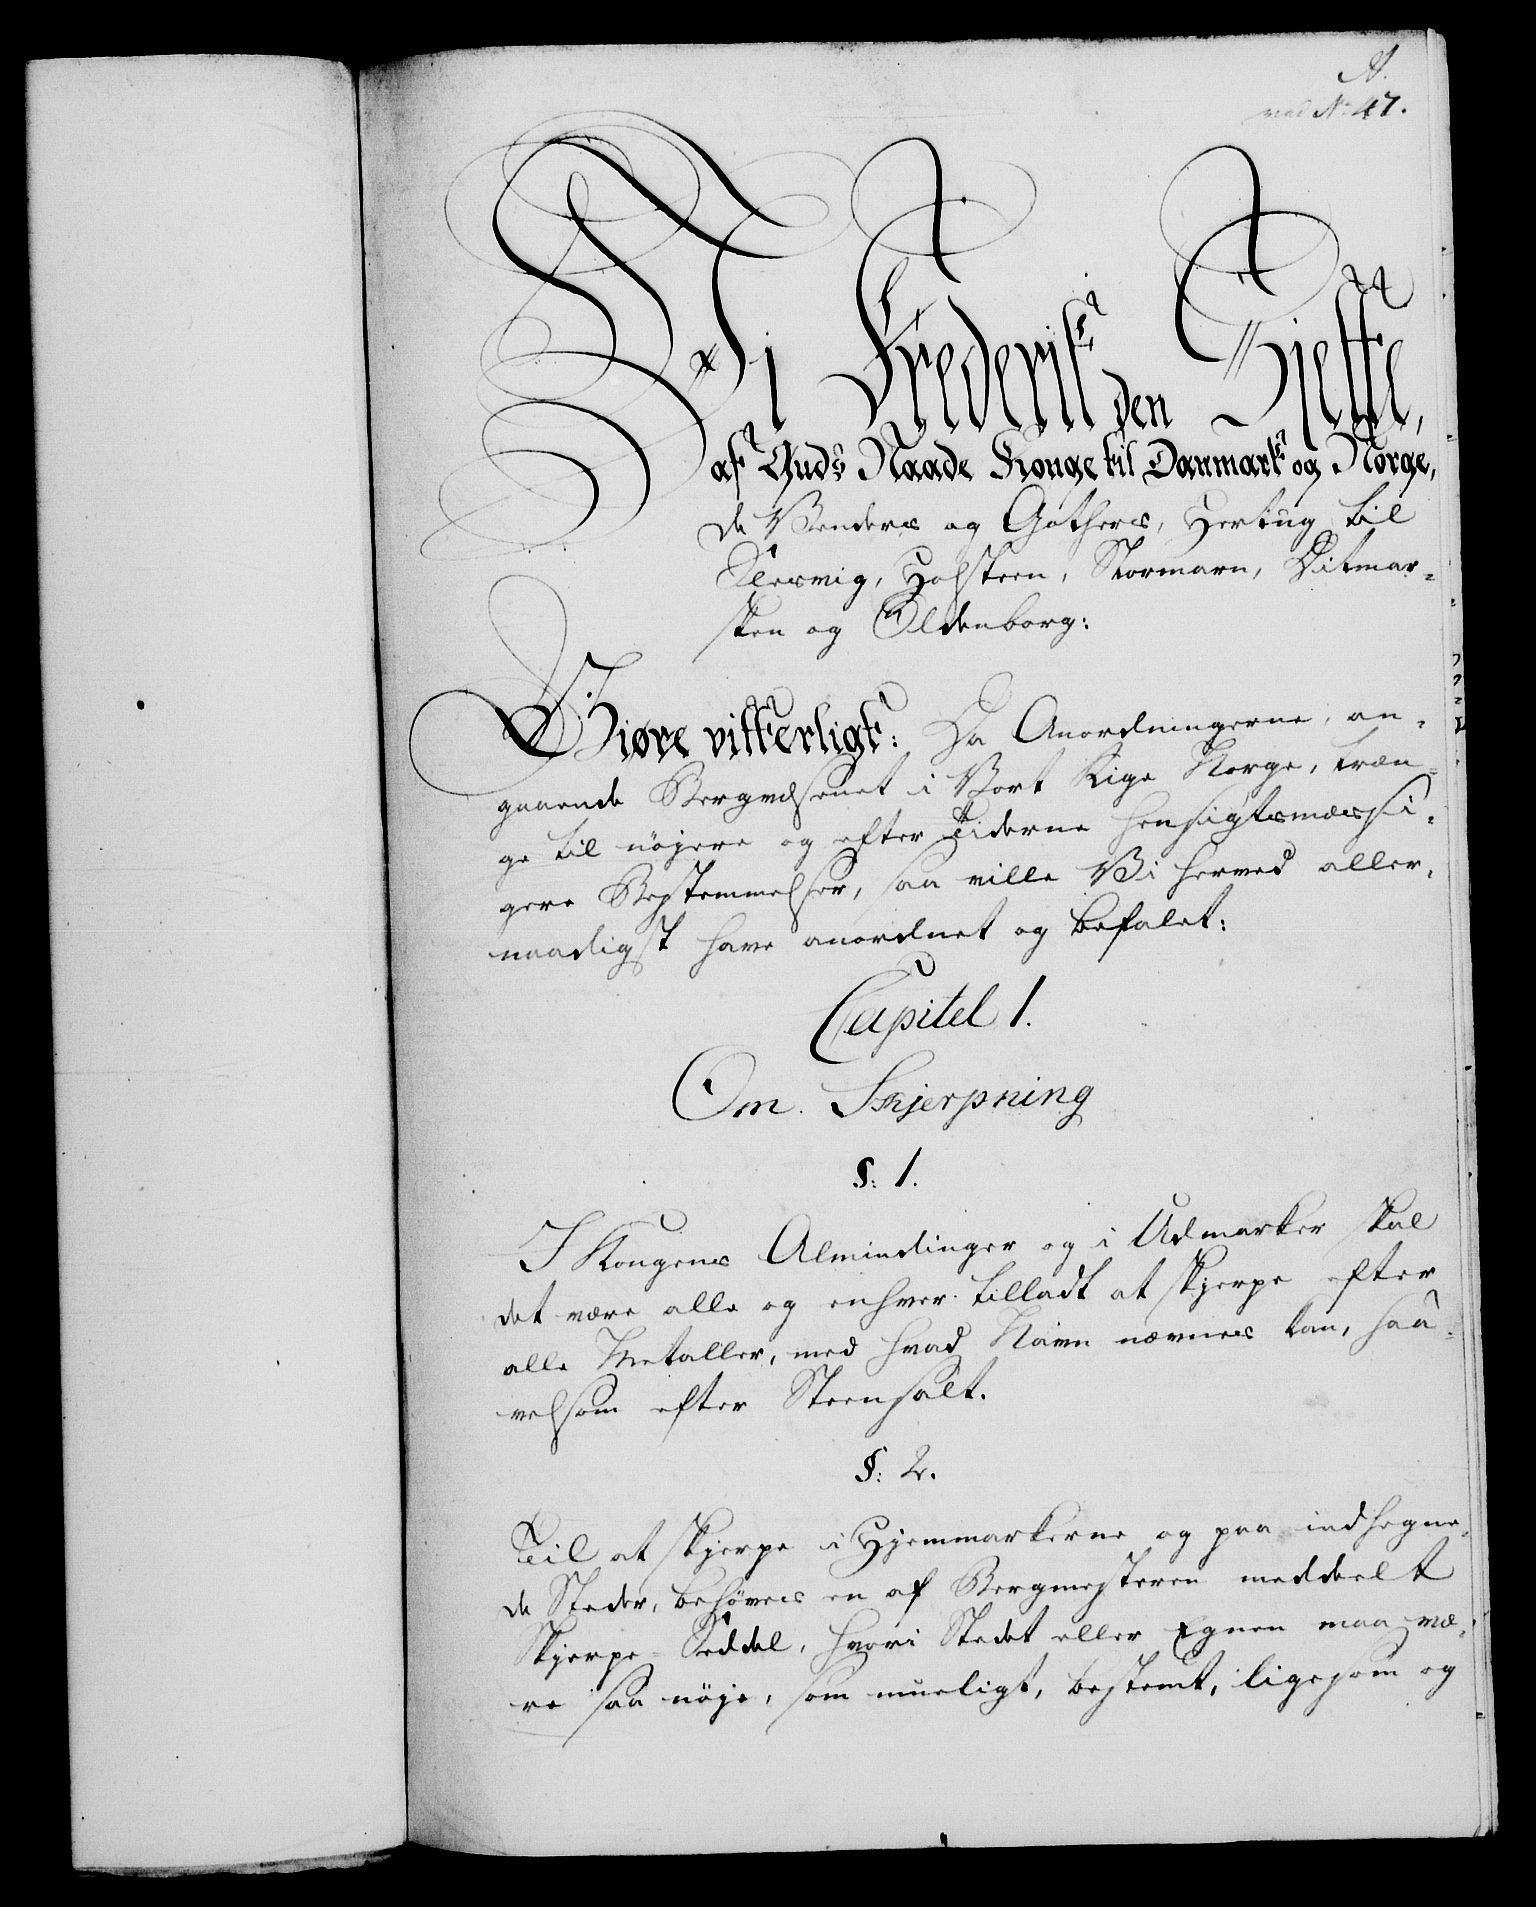 A.
ved No 47.
Vi Frederik den Sjette,
af Guds Naade Konge til Danmark og Norge,
de Venders og Gothers, Hertug til
Slesvig, Holsteen, Stormarn, Ditmar-
sken og Oldenborg:
Giøre vitterligt: Da Anordningerne, an-
gaaende Bergværsenet i Vort Rige Norge, træn-
ge til nøjere og efter Tiderne hensigtsmæssi-
gere Bestemmelser, saa ville Vi herved aller-
naadigst have anordnet og befalet:
Capitel 1.
Om Skjerpning
§: 1.
I Kongens Almindinger og i Udmarker skal
det være alle og enhver tilladt at skjerpe efter
alle Metaller, med hvad Navn nævnes kan, saa-
velsom efter Steensalt.
§: 2.
Til at skjerpe i Hjemmarkerne og paa indhegne-
de Steder, behøves en af Bergmesteren meddeelt
Skjerpe-Seddel, hvori Stedet eller Egnen maa væ-
re saa nøje, som mueligt, bestemt, ligesom og